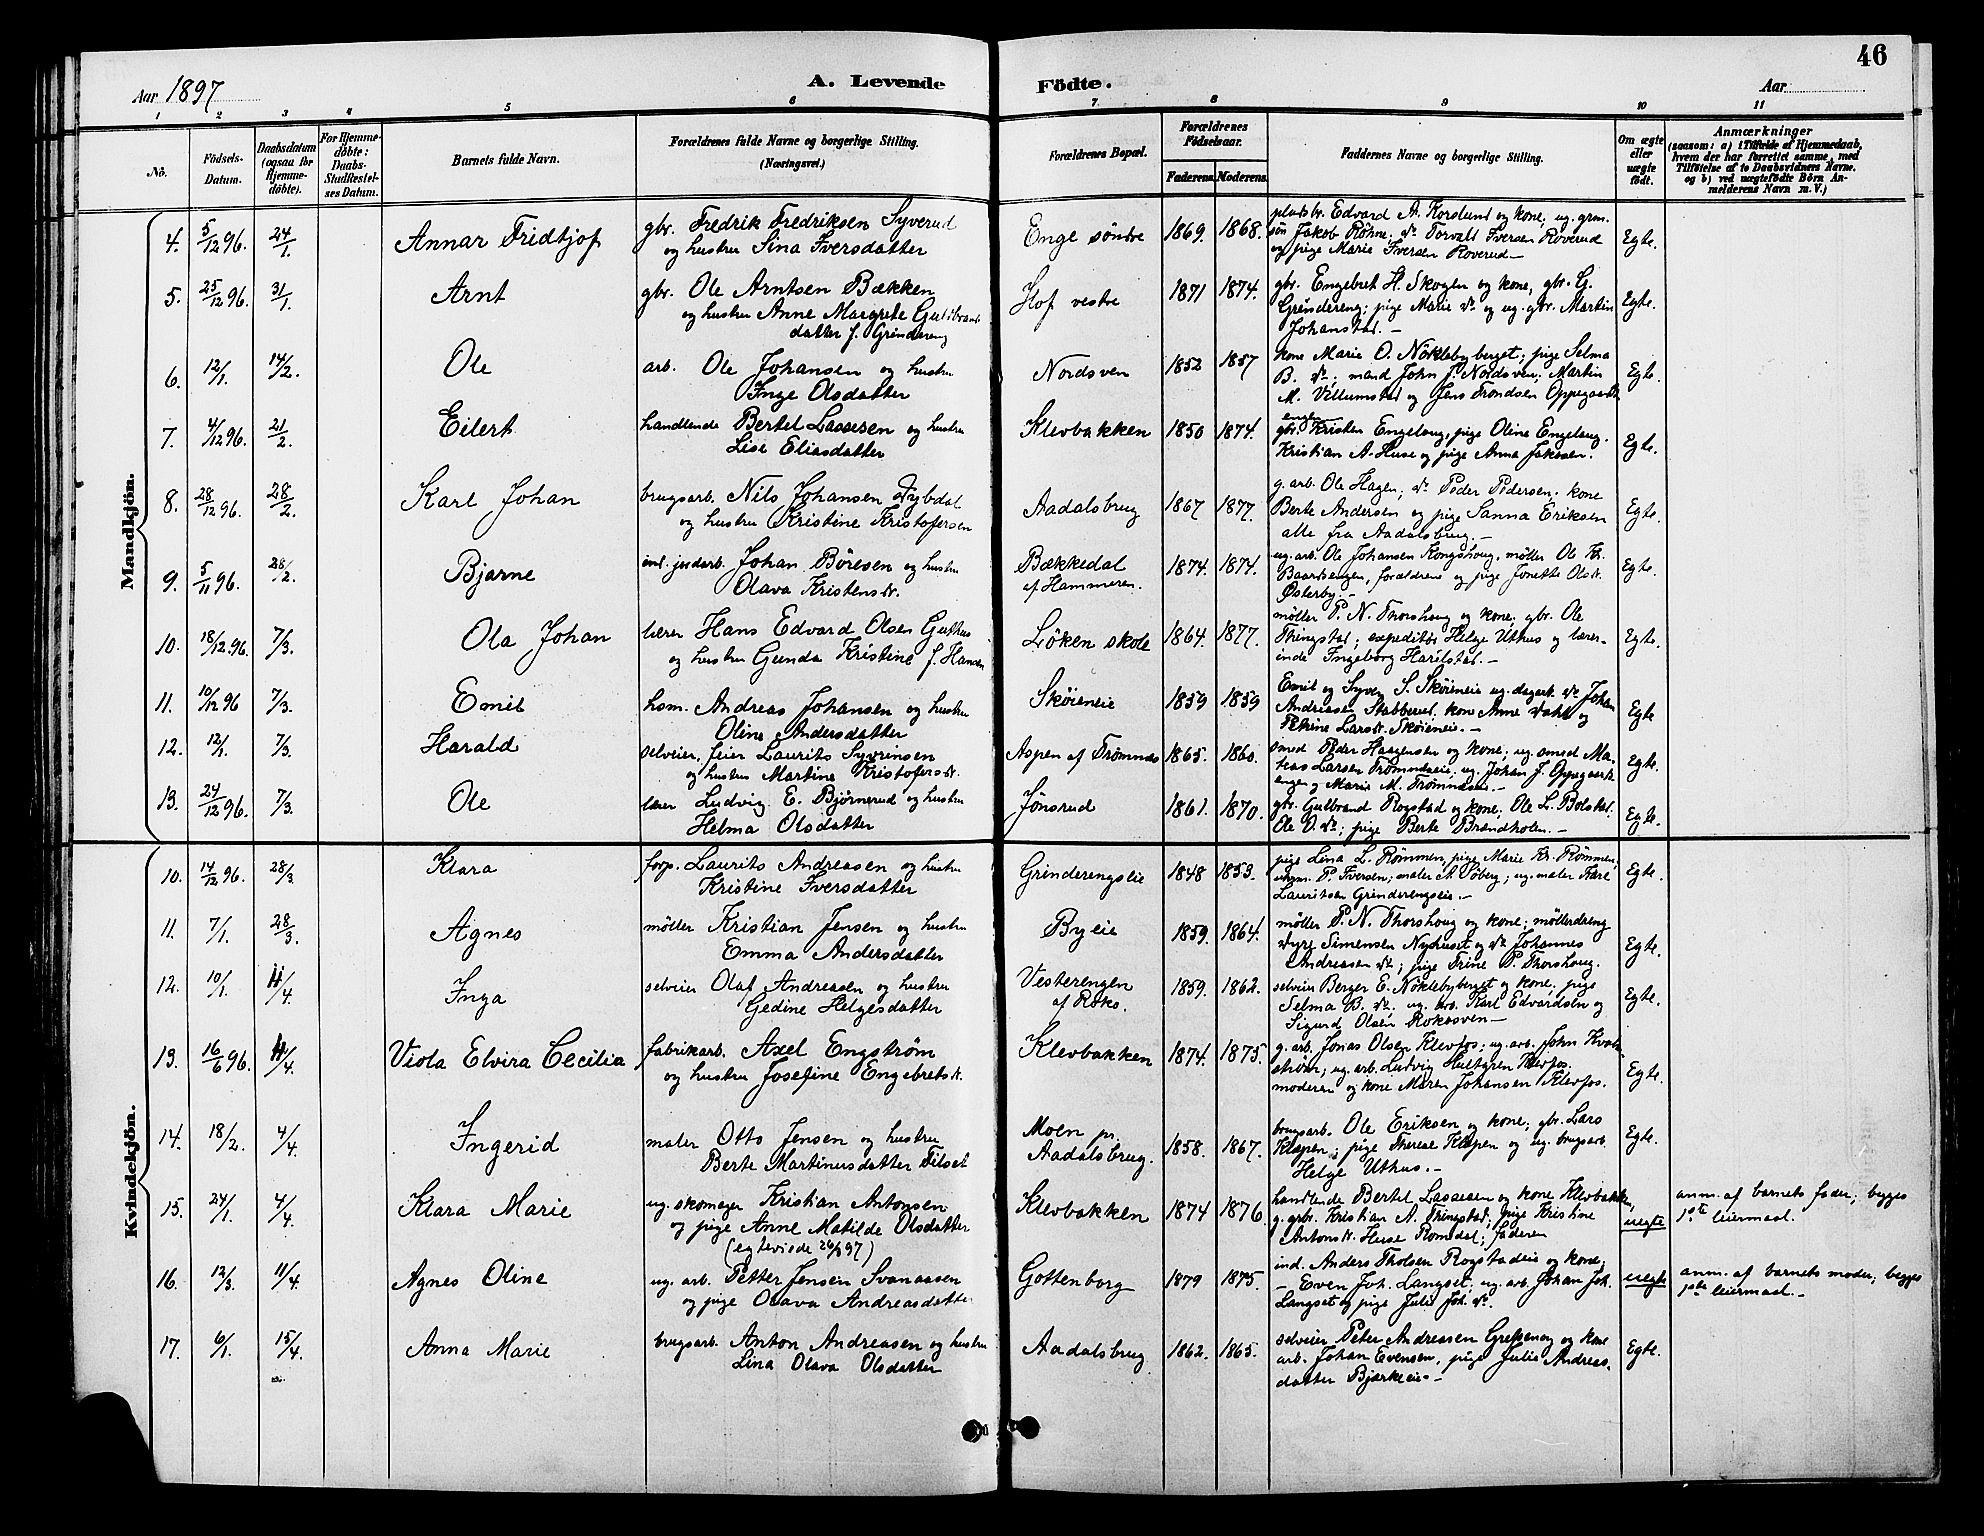 46
Aar 1897
A. Levende
Fødte.
Aar
1 2 3 4 5 6 7 8 9 10 11
No.
Fødsels-
Datum.
Daabsdatum
(ogsaa for
Hjemme-
døbte).
For Hjemme-
døbte:
Daabs-
Stadfæstel-
ses Datum.
Barnets fulde Navn.
Forældrenes fulde Navne og borgerlige Stilling.
(Næringsvei.)
Forældrenes Bopæl.
Forældrenes
Fødselsaar.
Faderens. Moderens.
Faddernes Navne og borgerlige Stilling.
Om ægte
eller
uægte
født.
Anmærkninger
(saasom: a) i Tilfælde af Hjemmedaab,
hvem der har forrettet samme, med
Tilføielse af to Daabsvidners Navne.
og b) ved uægtefødte Børn An-
melderens Navn m. V.)
Mandkjön.
4. 5/12 96. 24/1. Annar Fridtjof
gbr. Fredrik Fredriksen Syverud
og hustru Sina Iversdatter
Enge søndre 1869. 1868.
pladsbr. Edvard A. Korslund og kone, ug. grm.
søn Jakob Röhne. do Torvald Iversen Roverud
og pige Marie Iversen Roverud.—
Egte.
5. 25/12 96. 31/1. Arnt
gbr. Ole Arntsen Bækken
og hustru Anne Margrete Guldbrands
datter f. Grindereng
Hof vestre 1871 1874.
gbr. Engebret H. Skogen og kone, gbr. G.
Grindereng; pige Marie do og ug. gbr. Martin
Johanstad.—
Egte.
6. 12/1. 14/2. Ole
arb. Ole Johansen og hustru
Inge Olsdatter
Nordsven 1852 1857
kone Marie O. Nöklebyberget; pige Selma
B. do; mand John J. Nordsven; Martin
M. Villumstad og Jens Trondsen Oppegaards
engen
Egte.
7. 4/12 96. 21/2. Eilert
handlende Bertel Lassesen og hustru
Lise Eliasdatter
Klevbakken 1850 1874.
gbr. Kristen Engelaug, pige Oline Engelaug.
Kristian A. Huse og pige Anna Jakobsen.
Egte.
8. 28/12 96. 28/2. Karl Johan
brugsarb. Nils Johansen Dybdal
og hustru Kristine Kristofersen
Aadalsbrug 1867 1877.
g. arb. Ole Hagen; do Peder Pedersen; kone
Berte Andersen og pige Sanna Eriksen
alle fra Aadalsbrug.—
Egte.
9. 5/11 96. 28/2. Bjarne
ind. jordarb. Johan Böresen og hustru
Olava Kristensdr.
Bækkedal
af Hammeren. 1874. 1874.
ug. arb. Ole Johansen Kongshoug, möller Ole Kr.
Baardsengen, forældrene og pige Jonette Olsdr.
Østerby.—
Egte.
10. 18/12 96. 7/3. Ola Johan
lærer Hans Edvard Olsen Guthus
og hustru Gunda Kristine f. Hansen
Löken skole 1864. 1877.
möller P. N. Thorshoug og kone; gbr. Ole
Thingstad; expeditör Helge Uthus og lærer-
inde Ingeborg Harilstad.—
Egte.
11. 10/12 96 7/3. Emil
hsm. Andreas Johansen og hustru
Oline Andersdatter
Sköieneie 1859 1859
Emil og Syver S. Sköieneie ug. dagarb. do Johan
Andreasen Stabberud. kone Anne Dahl og
Petrine Larsdr. Sköieneie.—
Egte
12. 12/1. 7/3. Harald
selveier, feier Laurits Syverinsen
og hustru Martine Kristofersdr.
Aspen af Trömnæs 1865. 1860.
smed Peder Haagensen og kone; ug. smed Ma-
teas Larsen Trömnæseie; ug. Johan J. Oppegaards
engen og Marie M. Trömnæs.—
Egte.
13. 24/12 96. 7/3. Ole
lærer Ludvig E. Björnerud og hustru
Helma Olsdatter
Jönsrud 1861. 1870.
gbr. Gulbrand Rogstad og kone; Ole L. Bolstad.
Ole O. do; pige Berte Brændholen.—
Egte.
Kvindekjön.
10. 14/12 96. 28/3. Klara
forp. Laurits Andreasen og hustru
Kristine Iversdatter
Grinderengseie 1848 1853.
pige Lina L. Römmen, pige Marie Kr. Römmen,
P. Iversen; maler A. Söberg; ug. maler Karl
Lauritsen Grinderengseie.—
Egte.
11. 7/1. 28/3. Agnes
möller Kristian Jensen og hustru
Emma Andersdatter
Byeie 1859. 1864.
möller P. N. Thorshoug og kone; möllerdreng
Dyre Simensen Nyhuset og do Johannes
Andreasen do; pige Trine P. Thorshoug.
Egte.
12. 10/1. 4/4. Inga
selveier Olaf Andreasen og hustru
Gedine Helgesdatter
Vesterengen
af Roko. 1859. 1862.
selveier Berger E. Nöklebyberget og kone, pige
Selma B. do. ug. arb. Karl Edvardsen og
Sigurd Olsen Rokosven—
Egte.
13. 16/6 96. 4/4. Viola Elvira Cecilia
fabrikarb. Axel Engström
og hustru Josefine Engebretsdr.
Klevbakken 1874. 1875.
g. arb. Jonas Olsen Klevfos; ug. arb. John Kvarn
ström; ug. arb. Ludvig Hultgren Klevfos.
moderen og kone Maren Johansen Klevfos.
Egte.
14. 18/2. 4/4. Ingerid
maler Otto Jensen og hustru
Berte Martinusdatter Tilset
Moen pr.
Aadalsbrug. 1858. 1867.
brugsarb. Ole Eriksen og kone; gbr. Lars
Klæpen; pige Therese Klæpen og ug. brugsarb.
Helge Uthus.—
Egte.
15. 24/1. 4/4. Klara Marie
ug. skomager Kristian Antonsen
og pige Anne Matilde Olsdatter
(egteviede 26/3 97)
Klevbakken 1874 1876
handlende Bertel Lassesen og kone Klevbakken,
g. grbr. Kristian A. Thingstad; pige Kristine
Antonsdr. Huse Romedal; faderen
uegte
anm. af barnets fader; begges
1ste leiermaal.
16. 12/3. 11/4. Agnes Oline
ug. arb. Petter Jensen Svanaasen
og pige Olava Andreasdatter
Gottenborg 1879 1875.
ind. Anders Tholsen Rogstadeie og kone;
— Even Joh. Langset; ug. arb. Johan Joh.
Langset og pige Julie Joh. do.
uegte
anm. af barnets moder; begges
1ste leiermaal.—
17. 6/1. 15/4. Anna Marie
brugsarb. Anton Andreasen og hustru
Lina Olava Olsdatter
Aadalsbrug 1862. 1865.
selveier Peter Andreasen Grefsenog og kone
arb. Johan Evensen, pige Julie Andreas-
datter Bjærkeeie—
Egte.